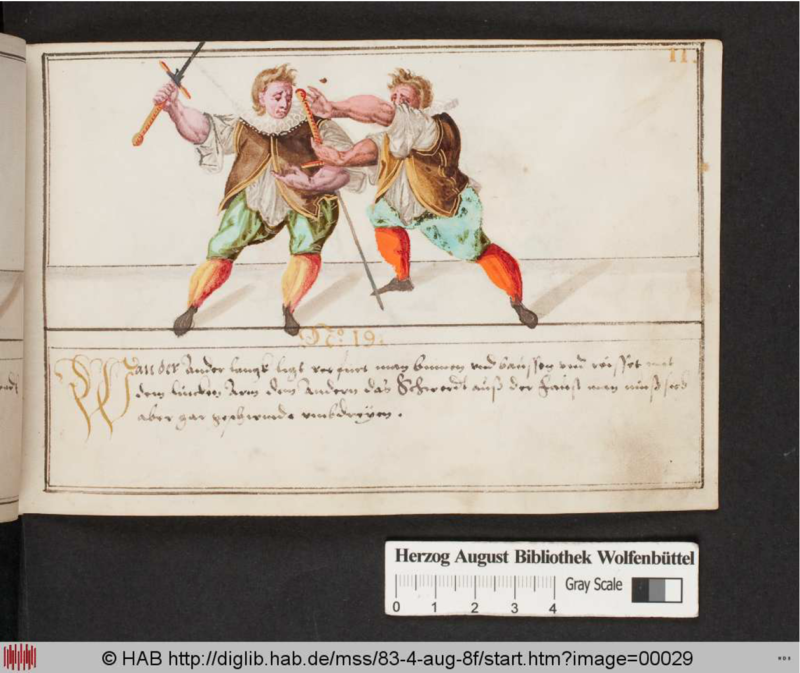 11.
No: 19.
Wan der Ander langk ligt verfürt man binnen und baussen und reisset mit
dem lincken Arm dem Andern das Schwerdt auß der faust man muß sich
aber gar geschwinde umbdreyen.
Herzog August Bibliothek Wolfenbüttel
Gray Scale
0 1 2 3 4
© HAB http://diglib.hab.de/mss/83-4-aug-8f/start.htm?image=00029